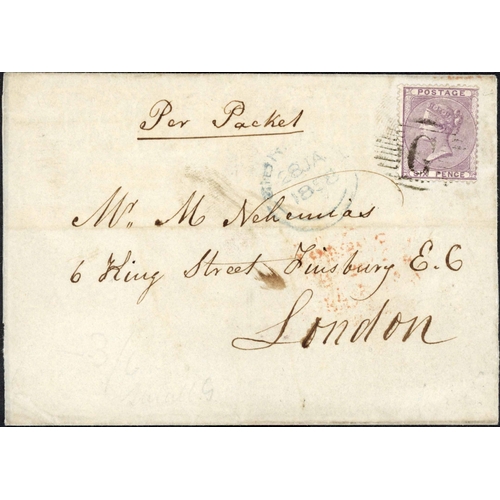 Per Packet
POSTAGE
C
SIX PENCE
28 JA
185
Mr. M Nehemias
6 King Street Finsbury E.C
London
3/6